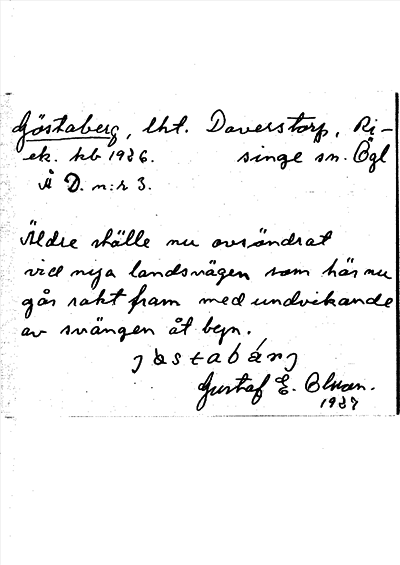 Göstaberg, lht. Daverstorp, Ri-
ek. kb 1936. singe sn. Ögl
Å D. n:r 3.
Äldre ställe nu avsöndrat
vid nya landsvägen som här nu
går rakt fram med undvikande
av svängen åt byn.
Gustaf E. Olsson.
1937